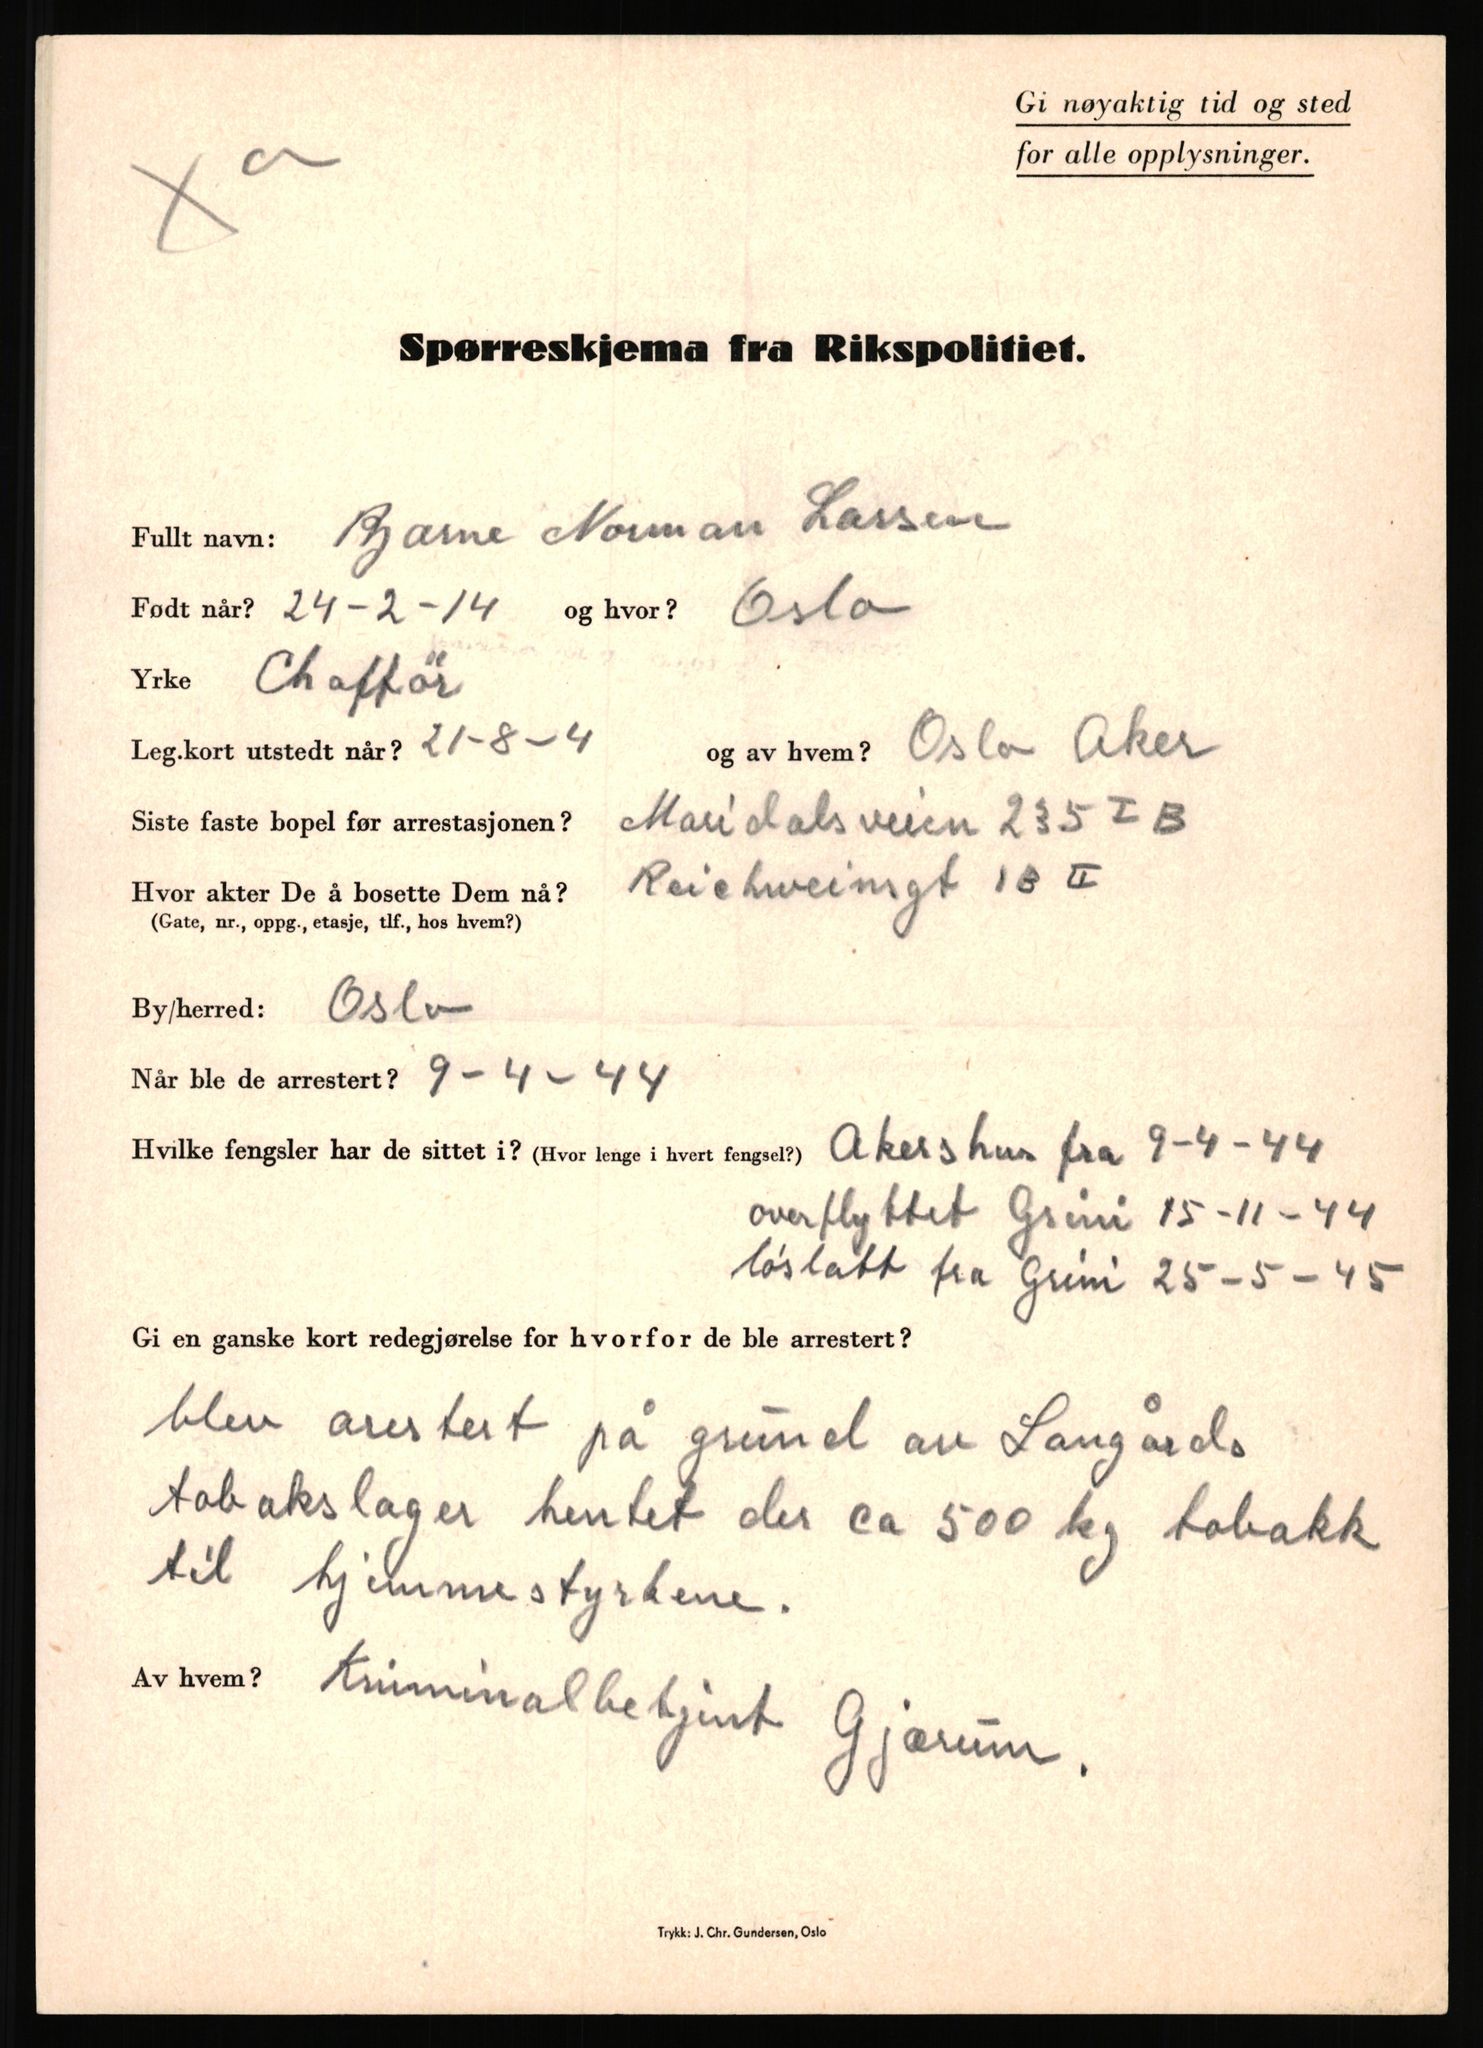 Gi nøyaktig tid og sted
for alle opplysninger.
X a
Spørreskjema fra Rikspolitiet.
Fullt navn: Bjarne Norman Larsen
Født når? 24-2-14 og hvor? Oslo
Yrke Chafför
Leg.kort utstedt når? 21-8-4 og av hvem? Oslo Aker
Siste faste bopel før arrestasjonen? Maridalsveien 235 I B
Hvor akter De å bosette Dem nå? Reichweinsgt 1B II
(Gate, nr., oppg., etasje, tlf., hos hvem?)
By/herred: Oslo
Når ble de arrestert? 9-4-44
Hvilke fengsler har de sittet i? (Hvor lenge i hvert fengsel?) Akershus fra 9-4-44
overflyttet Grini 15-11-44
löslatt fra Grini 25-5-45
Gi en ganske kort redegjørelse for hvorfor de ble arrestert?
blev arestert på grund av Langårds
tobakslager hentet der ca 500 kg tobakk
til hjemmestyrkene.
Av hvem? Kriminalbetjent Gjærum.
Trykk: J. Chr. Gundersen, Oslo